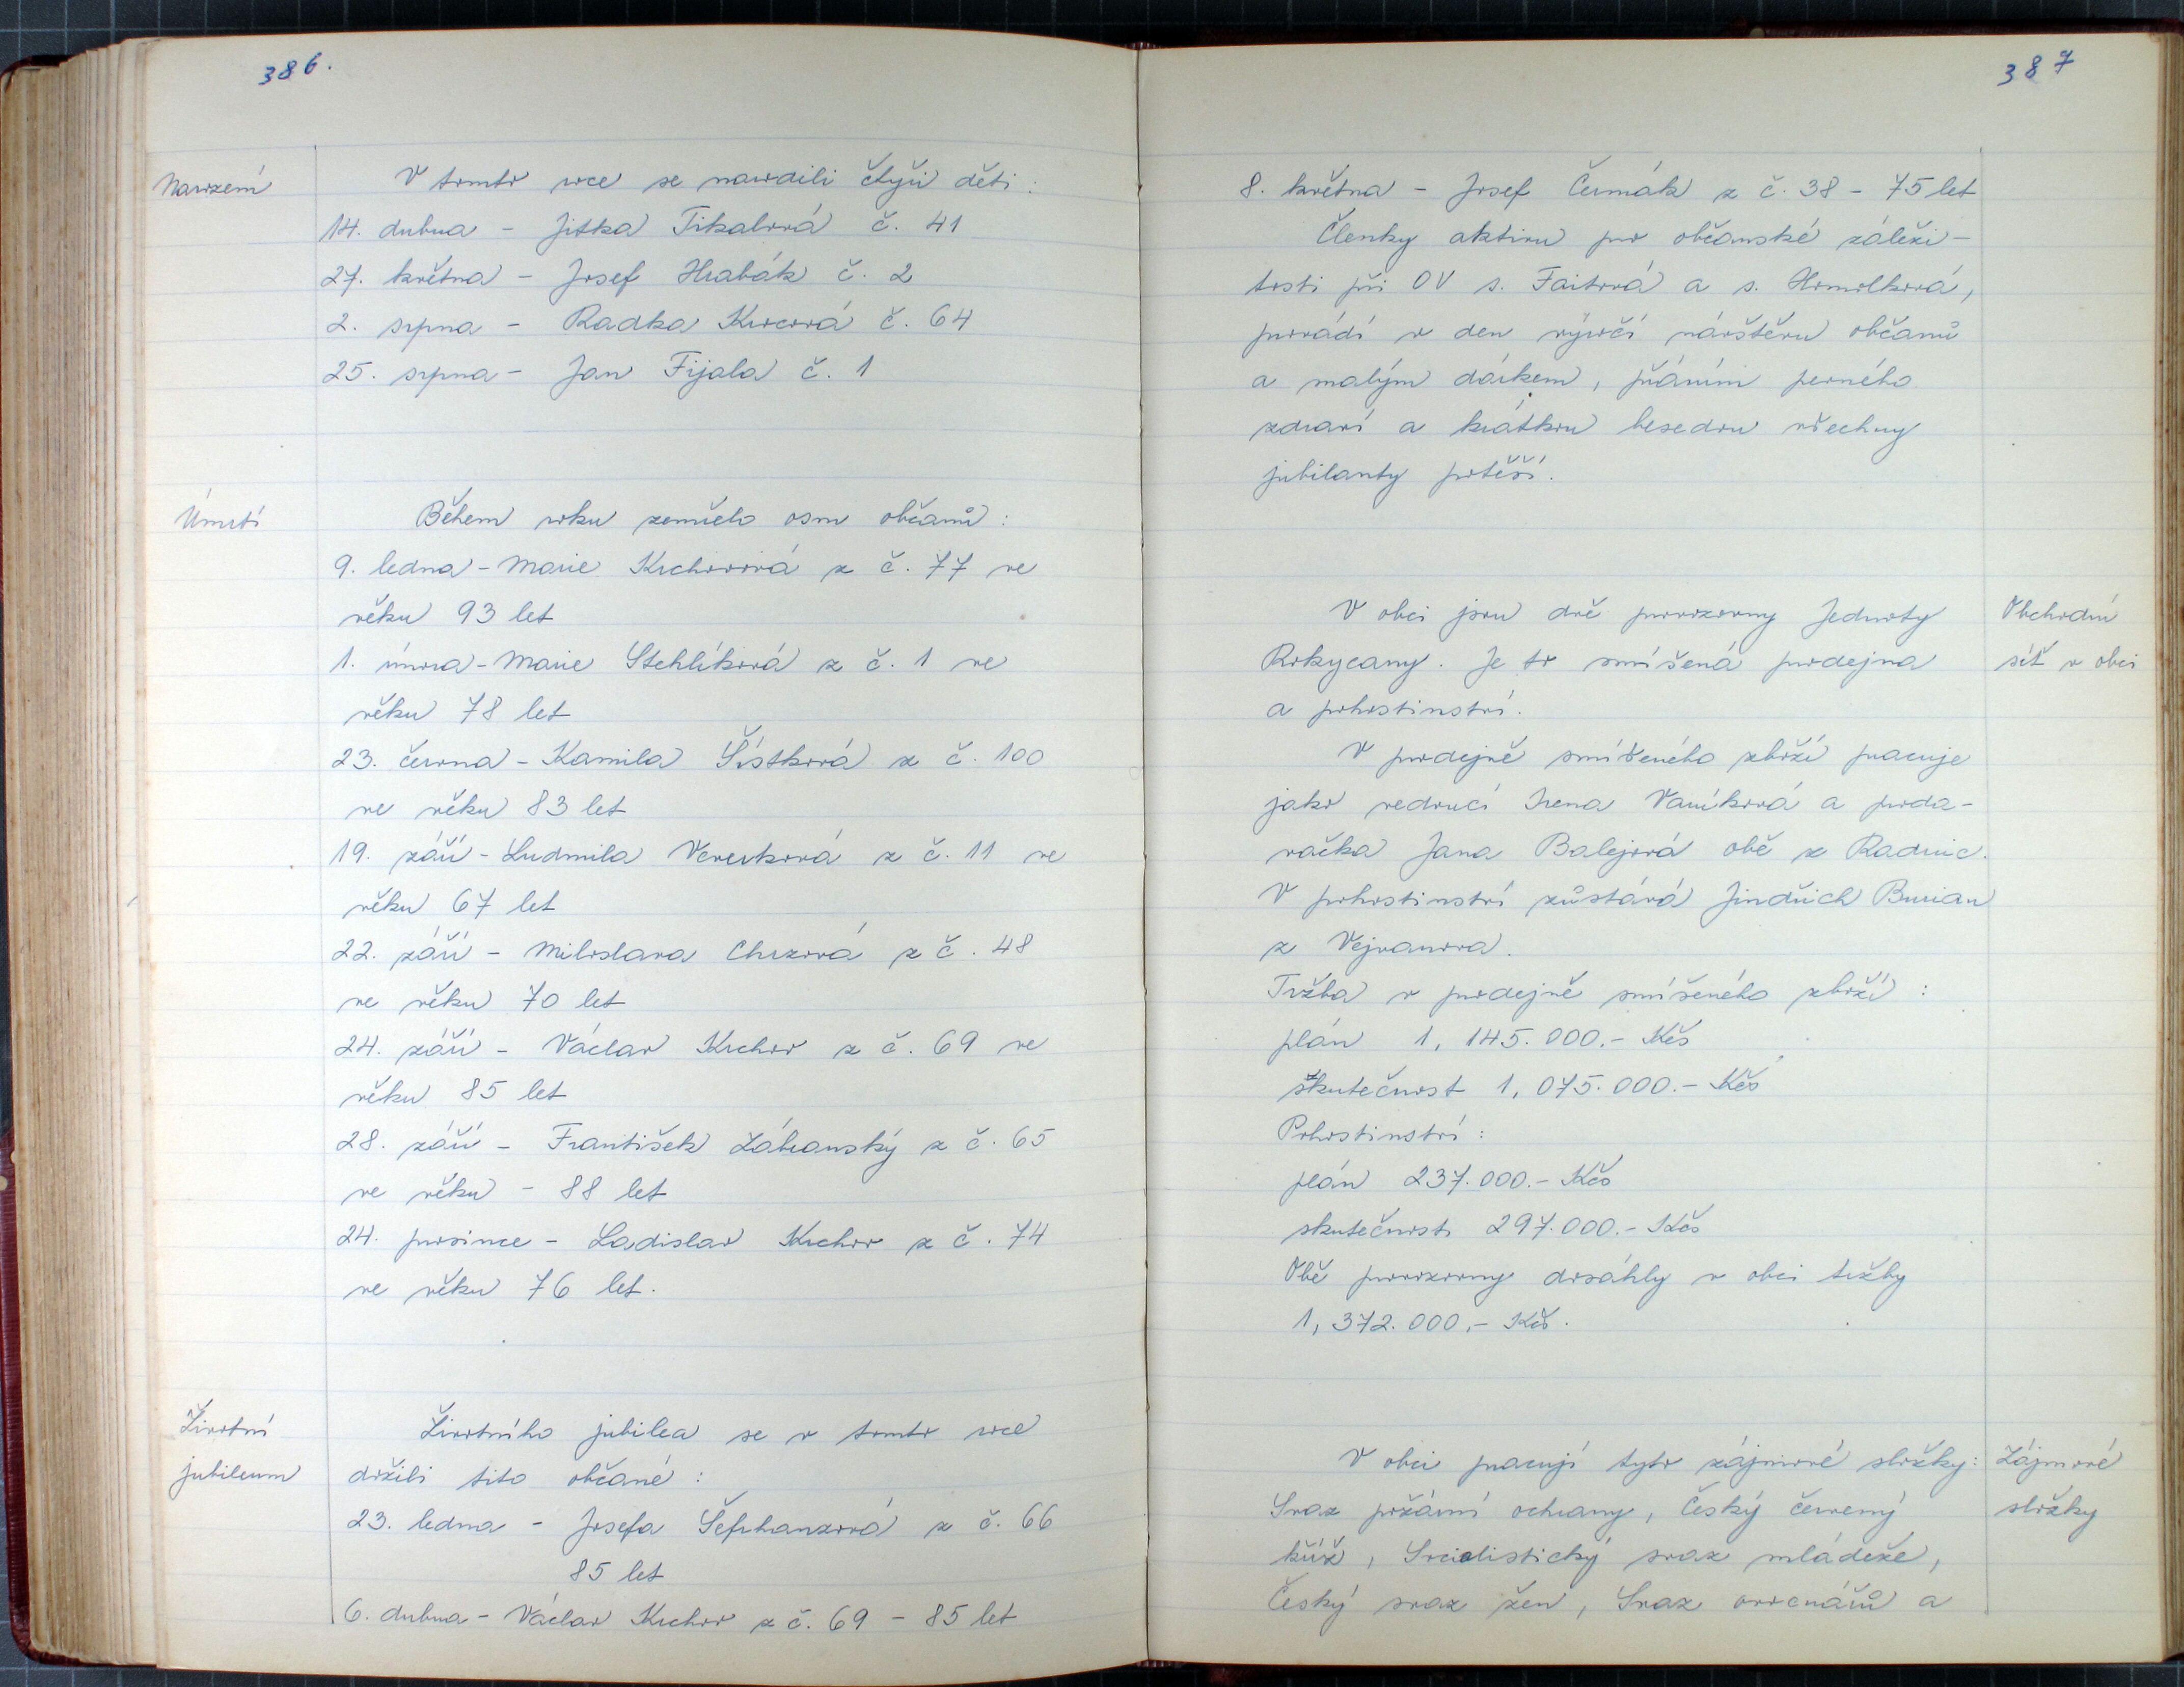 386.
Narození
V tomto roce se narodili čtyři děti:
14. dubna - Jitka Tikalová č. 41
27. května - Josef Hrabák č. 2
2. srpna - Radka Krocová č. 64
25. srpna - Jan Fijala č. 1
Úmrtí
Během roku zemřelo osm občanů:
9. ledna - Marie Krchovová z č. 77 ve
věku 93 let
1. února - Marie Stehlíková z č. 1 ve
věku 78 let
23. června - Kamila Šístková z č. 100
ve věku 83 let
19. září - Ludmila Veverková z č. 11 ve
věku 67 let
22. září - Miloslava Chrzová z č. 48
ve věku 70 let
24. září - Václav Krchov z č. 69 ve
věku 85 let
28. září - František Zábranský z č. 65
ve věku - 88 let
24. prosince - Ladislav Krchov z č. 74
ve věku 76 let.
Životní
jubileum
Životního jubilea se v tomto roce
dožili tito občané:
23. ledna - Josefa Šefrhanzová z č. 66
85 let
6. dubna - Václav Krchov z č. 69 - 85 let
387
8. května - Josef Čermák z č. 38 - 75 let
Členky aktivu pro občanské záleži-
tosti při OV s. Faitová a s. Homolková,
provádí v den výročí návštěvu občanů
a malým dárkem, přáním pevného
zdraví a krátkou besedou všechny
jubilanty potěší.
V obci jsou dvě provozovny Jednoty
Rokycany. Je to smíšená prodejna
a pohostinství.
Obchodní
síť v obci
V prodejně smíšeného zboží pracuje
jako vedoucí Irena Vaníková a proda-
vačka Jana Balejová obě z Radnic.
V pohostinství zůstává Jindřich Burian
z Vejvanova.
Tržba v prodejně smíšeného zboží:
plán 1, 145.000.- Kčs
skutečnost 1, 075.000.- Kčs
Pohostinství:
plán 237.000.- Kčs
skutečnost 297.000.- Kčs
Obě provozovny dosáhly v obci tržby
1, 372.000,- Kčs.
V obci pracují tyto zájmové složky:
Zájmové
složky
Svaz požární ochrany, Český červený
kříž, Socialistický svaz mládeže,
Český svaz žen, Svaz ovocnářů a